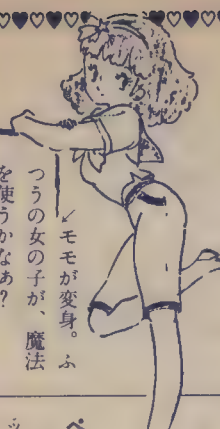 ↙モモが変身。ふ
つうの女の子が、魔法
を使うかなぁ?